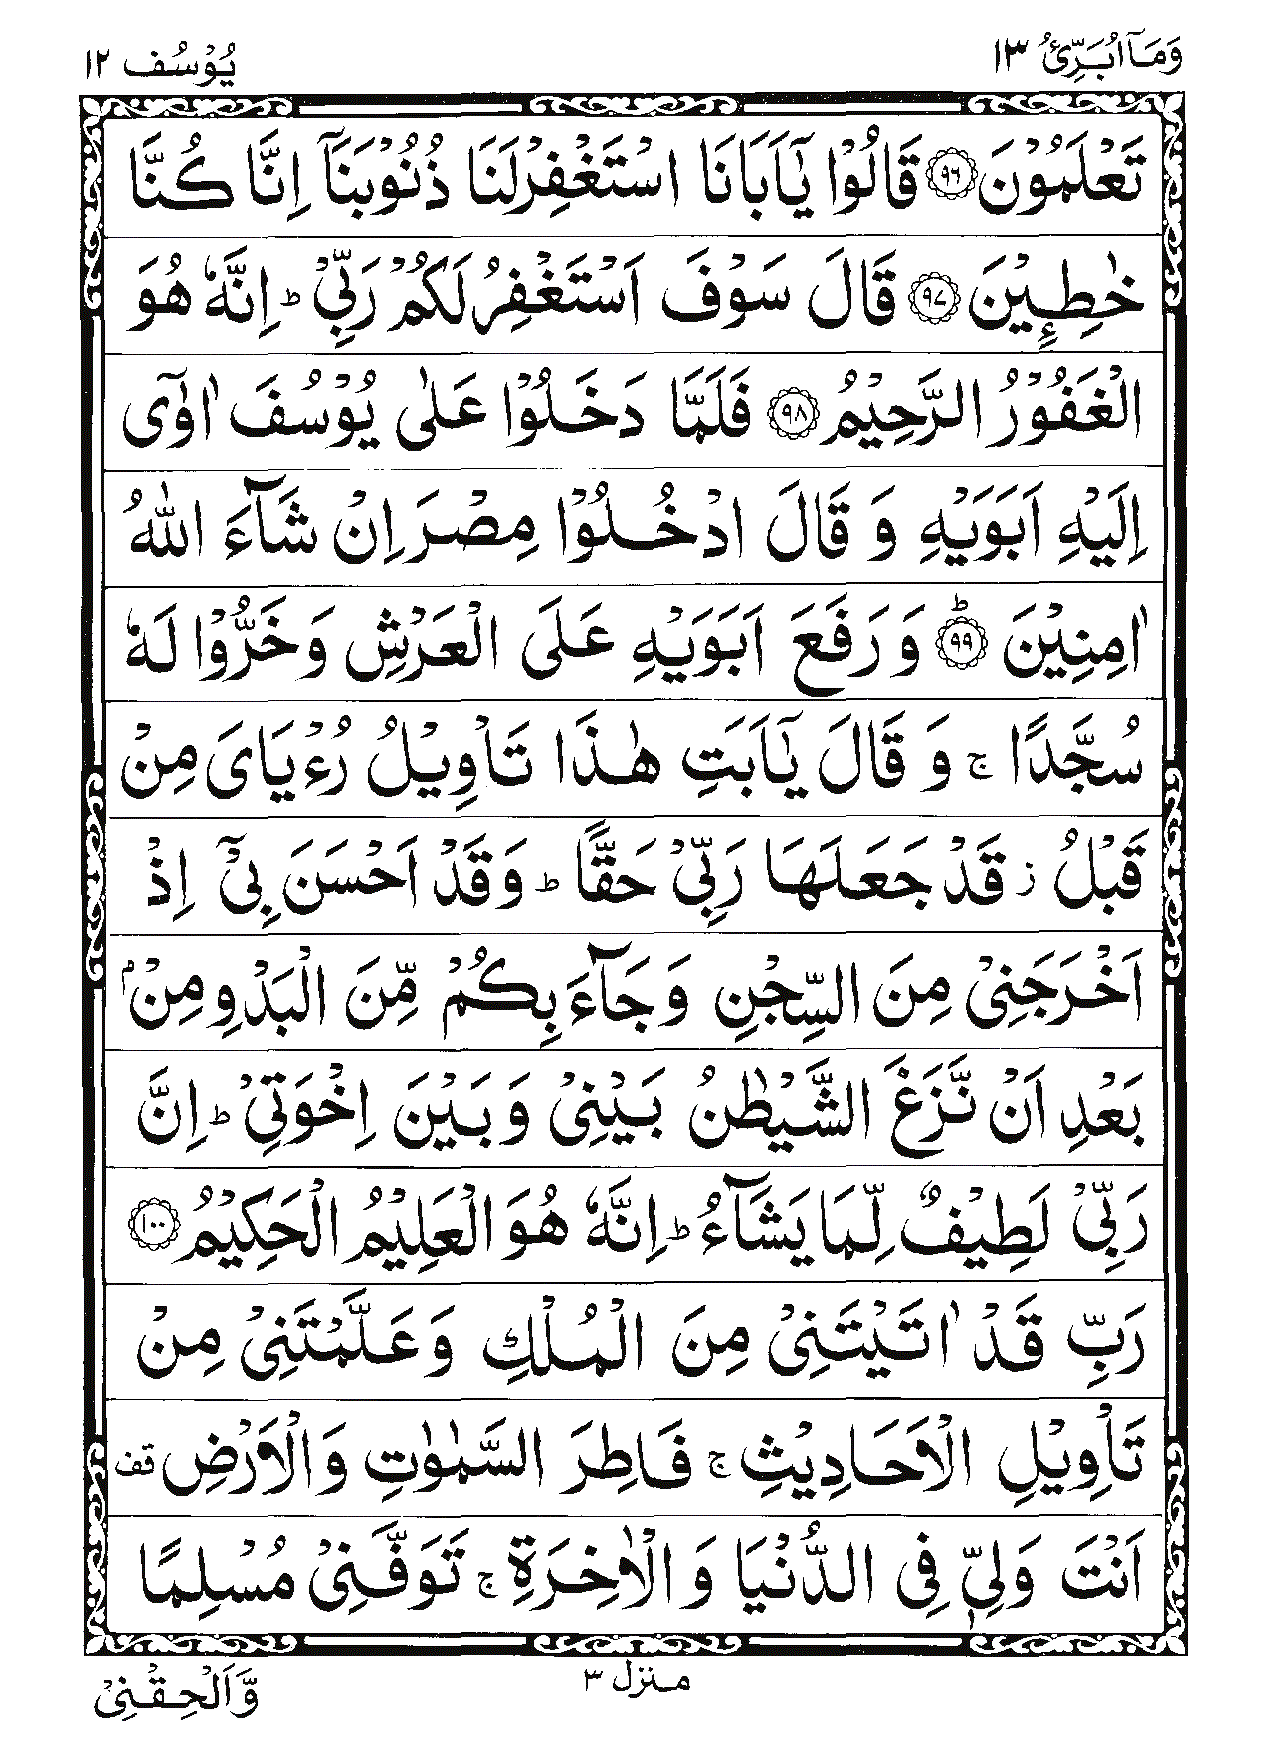 وَمَاۤ اُبَرِّئُ ١٣
يُوْسُف ١٢
تَعْلَمُوْنَ ﴿۹۶﴾ قَالُوْا يٰۤاَبَانَا اسْتَغْفِرْلَنَا ذُنُوْبَنَاۤ اِنَّا كُنَّا
خٰطِـِٕيْنَ ﴿۹۷﴾ قَالَ سَوْفَ اَسْتَغْفِرُ لَكُمْ رَبِّيْ ؕ اِنَّهٗ هُوَ
الْغَفُوْرُ الرَّحِيْمُ ﴿۹۸﴾ فَلَمَّا دَخَلُوْا عَلٰى يُوْسُفَ اٰوٰۤى
اِلَيْهِ اَبَوَيْهِ وَ قَالَ ادْخُلُوْا مِصْرَ اِنْ شَآءَ اللّٰهُ
اٰمِنِيْنَ ؕ﴿۹۹﴾ وَ رَفَعَ اَبَوَيْهِ عَلَى الْعَرْشِ وَ خَرُّوْا لَهٗ
سُجَّدًا ۚ وَ قَالَ يٰۤاَبَتِ هٰذَا تَاْوِيْلُ رُءْيَايَ مِنْ
قَبْلُ ؗ قَدْ جَعَلَهَا رَبِّيْ حَقًّا ؕ وَقَدْ اَحْسَنَ بِيْۤ اِذْ
اَخْرَجَنِيْ مِنَ السِّجْنِ وَ جَآءَ بِكُمْ مِّنَ الْبَدْوِ مِنْۢ
بَعْدِ اَنْ نَّزَغَ الشَّيْطٰنُ بَيْنِيْ وَ بَيْنَ اِخْوَتِيْ ؕ اِنَّ
رَبِّيْ لَطِيْفٌ لِّمَا يَشَآءُ ؕ اِنَّهٗ هُوَ الْعَلِيْمُ الْحَكِيْمُ ﴿۱۰۰﴾
رَبِّ قَدْ اٰتَيْتَنِيْ مِنَ الْمُلْكِ وَ عَلَّمْتَنِيْ مِنْ
تَاْوِيْلِ الْاَحَادِيْثِ ۚ فَاطِرَ السَّمٰوٰتِ وَالْاَرْضِ قف
اَنْتَ وَلِيّٖ فِي الدُّنْيَا وَ الْاٰخِرَةِ ۚ تَوَفَّنِيْ مُسْلِمًا
منزل ٣
وَّاَلْحِقْنِيْ